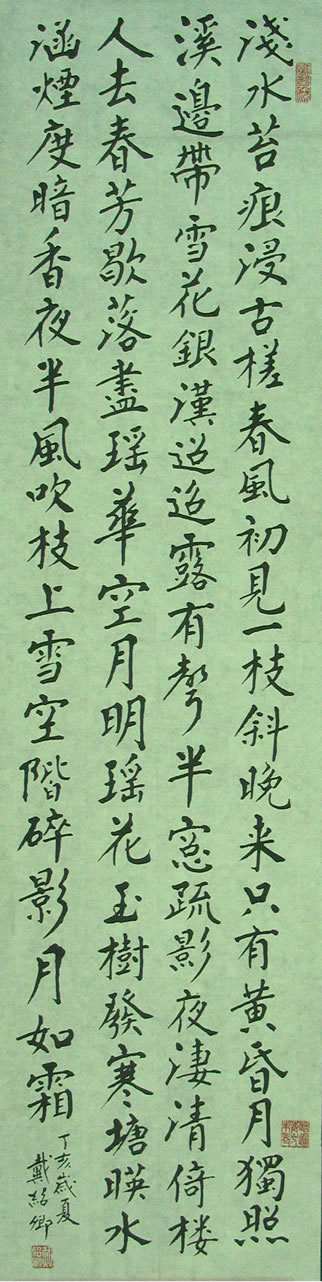 淺水苔痕浸古槎春風初見一枝斜晚来只有黃昏月獨照
溪邊帶雪花銀漢迢迢露有聲半窓疏影夜淒清倚楼
人去春芳歇落盡瑶華空月明瑶花玉樹發寒塘暎水
涵煙度暗香夜半風吹枝上雪空階碎影月如霜
丁亥歲夏
戴紹卿